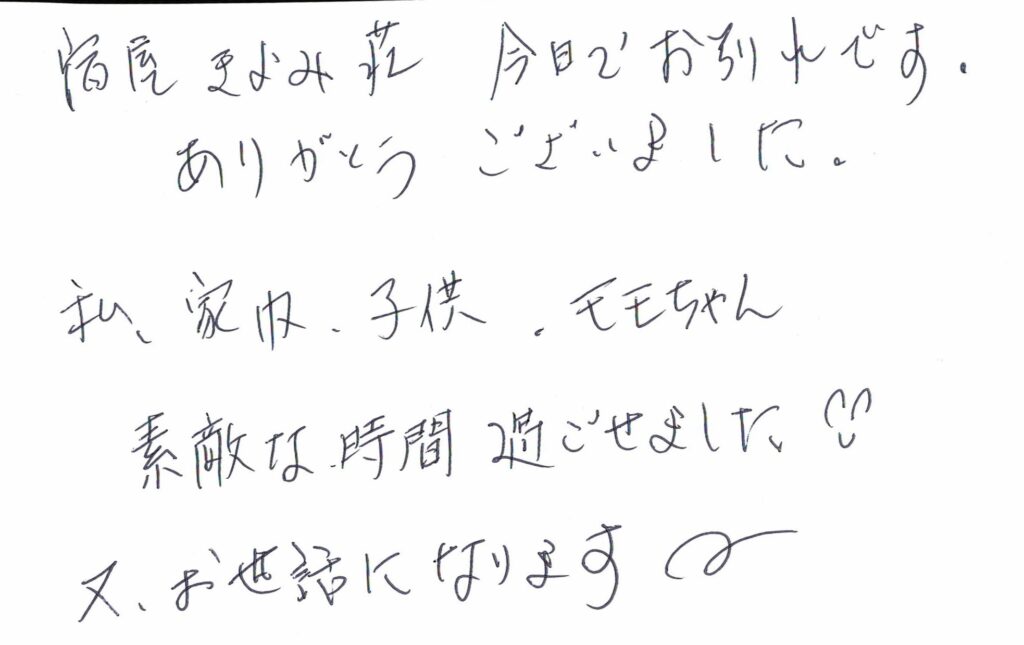 宿屋 きよみ荘 今日でお別れです.
ありがとう ございました.
私、家内、子供、モモちゃん
素敵な時間 過ごせました♡
又、お世話になります〜